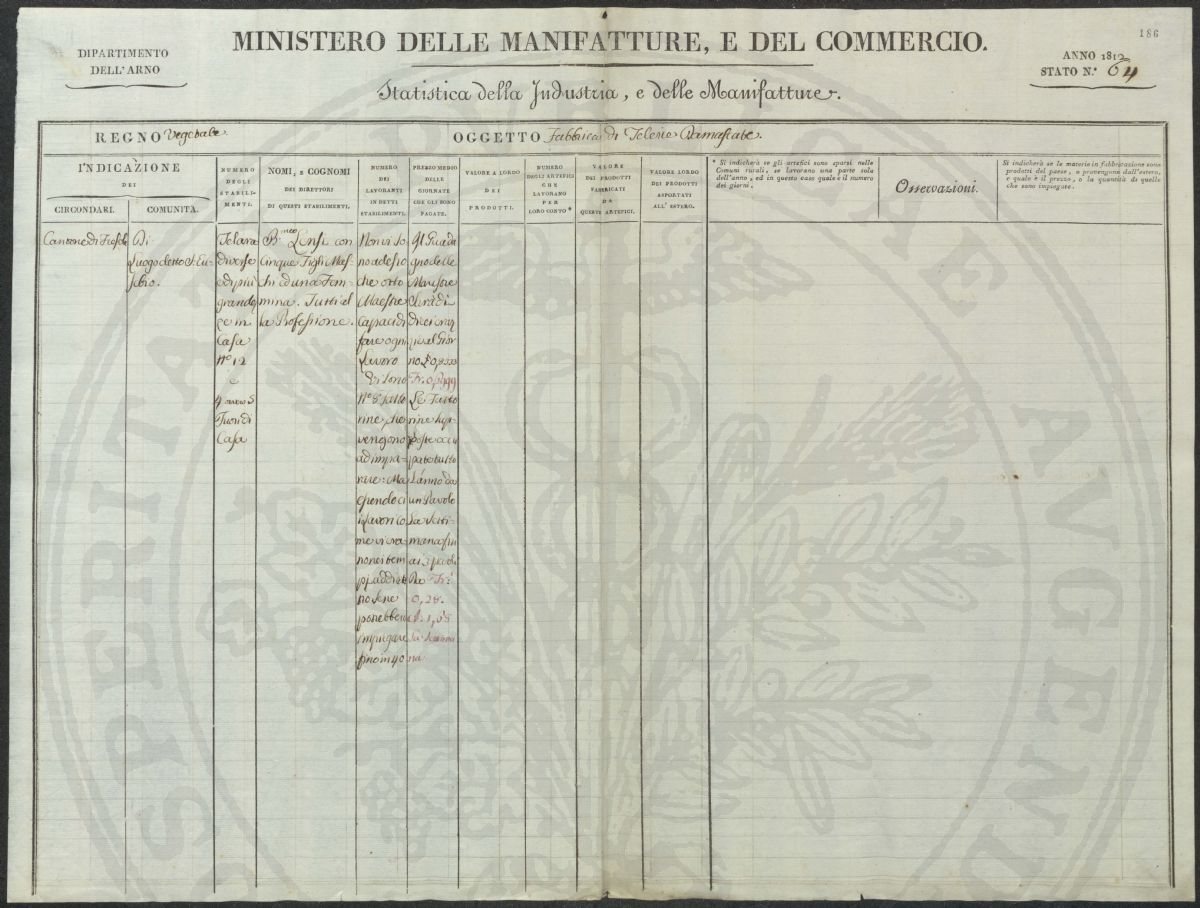 186
DIPARTIMENTO
DELL'ARNO
MINISTERO DELLE MANIFATTURE, E DEL COMMERCIO.
ANNO 1812
STATO N.° 64
Statistica della Industria, e delle Manifatture.
REGNO Vegetale
OGGETTO Fabbrica di Telerie Damascate.
INDICAZIONE
DEI
CIRCONDARI.
COMUNITÀ.
NUMERO
DEGLI
STABILI-
MENTI.
NOMI, E COGNOMI
DEI DIRETTORI
DI QUESTI STABILIMENTI.
NUMERO
DEI
LAVORANTI
IN DETTI
STABILIMENTI.
PREZZO MEDIO
DELLE
GIORNATE
CHE GLI SONO
PAGATE.
VALORE A LORDO
DEI
PRODOTTI.
NUMERO
DEGLI ARTEFICI
CHE
LAVORANO
PER
LORO CONTO*
VALORE
DEI PRODOTTI
FABBRICATI
DA
QUESTI ARTEFICI.
VALORE LORDO
DEI PRODOTTI
ASPORTATI
ALL'ESTERO.
* Si indicherà se gli artefici sono sparsi nelle
Comuni rurali, se lavorano una parte sola
dell'anno, ed in questo caso quale è il numero
dei giorni.
Osservazioni.
Si indicherà se le materie in fabbricazione sono
prodotti del paese, o provengono dall'estero,
e quale è il prezzo, o la quantità di quelle
che sono impiegate.
Cantone di Fiesole
Di
Luogo detto S. Eu-
sebio.
Telara
diverse
ed più
grandez
ze in
Casa
N° 12
e
4 ovvero 5
Fuori di
Casa
B.meo Lensi con
Cinque Figli Mas-
chi ed una Fem-
mina. Tutti del
la Professione.
Non vi so
no adesso
che otto
Maestre
Capaci di
fare ogni
Lavoro
Vi sono
N° 8 Fatto
rine, che
vengono
ad impa-
rare: Ma
essendoci
i Lavori co
me vi era
no nei tem
pi addiet
no sene
potrebbero
impiegare
fino in 40
Il Guada
gno delle
Maestre
Sarà di
dieci craz
zie al Gior
no £ 0,8333
Fr. 0,6999
Le Fatto
rine sup
poste occu
pate tutto
L'anno da
un Pavolo
La Setti-
mana fin
ai 3 pavoli
Da Fr.
0,28.
a 1,68
la settima
na